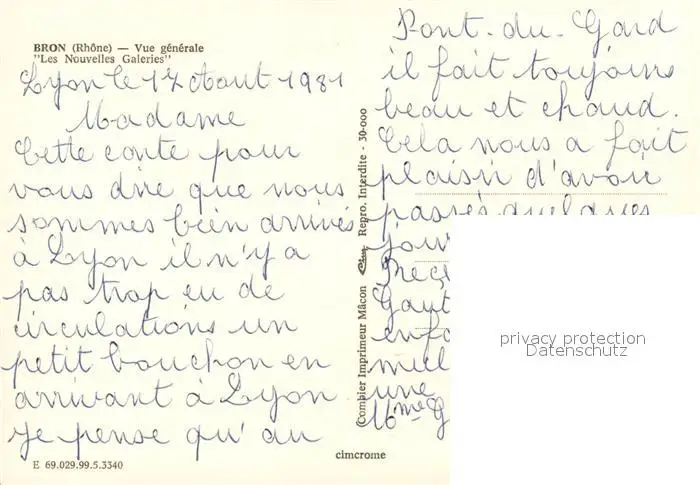 BRON (Rhône) — Vue générale
"Les Nouvelles Galeries"
Lyon le 17 Aout 1981
Madame
Cette carte pour
vous dire que nous
sommes bien arrivés
à Lyon il n'y a
pas trop eu de
circulations un
petit bouchon en
arrivant à Lyon
je pense qu'au
E 69.029.99.5.3340
Combier Imprimeur Mâcon Repro. Interdite - 30-000
cimcrome
Pont-du-Gard
il fait toujours
beau et chaud.
Cela nous a fait
plaisir d'avoir
passés quelques
jour
Gaut
enfa
mill
une
Mme G
privacy protection
Datenschutz